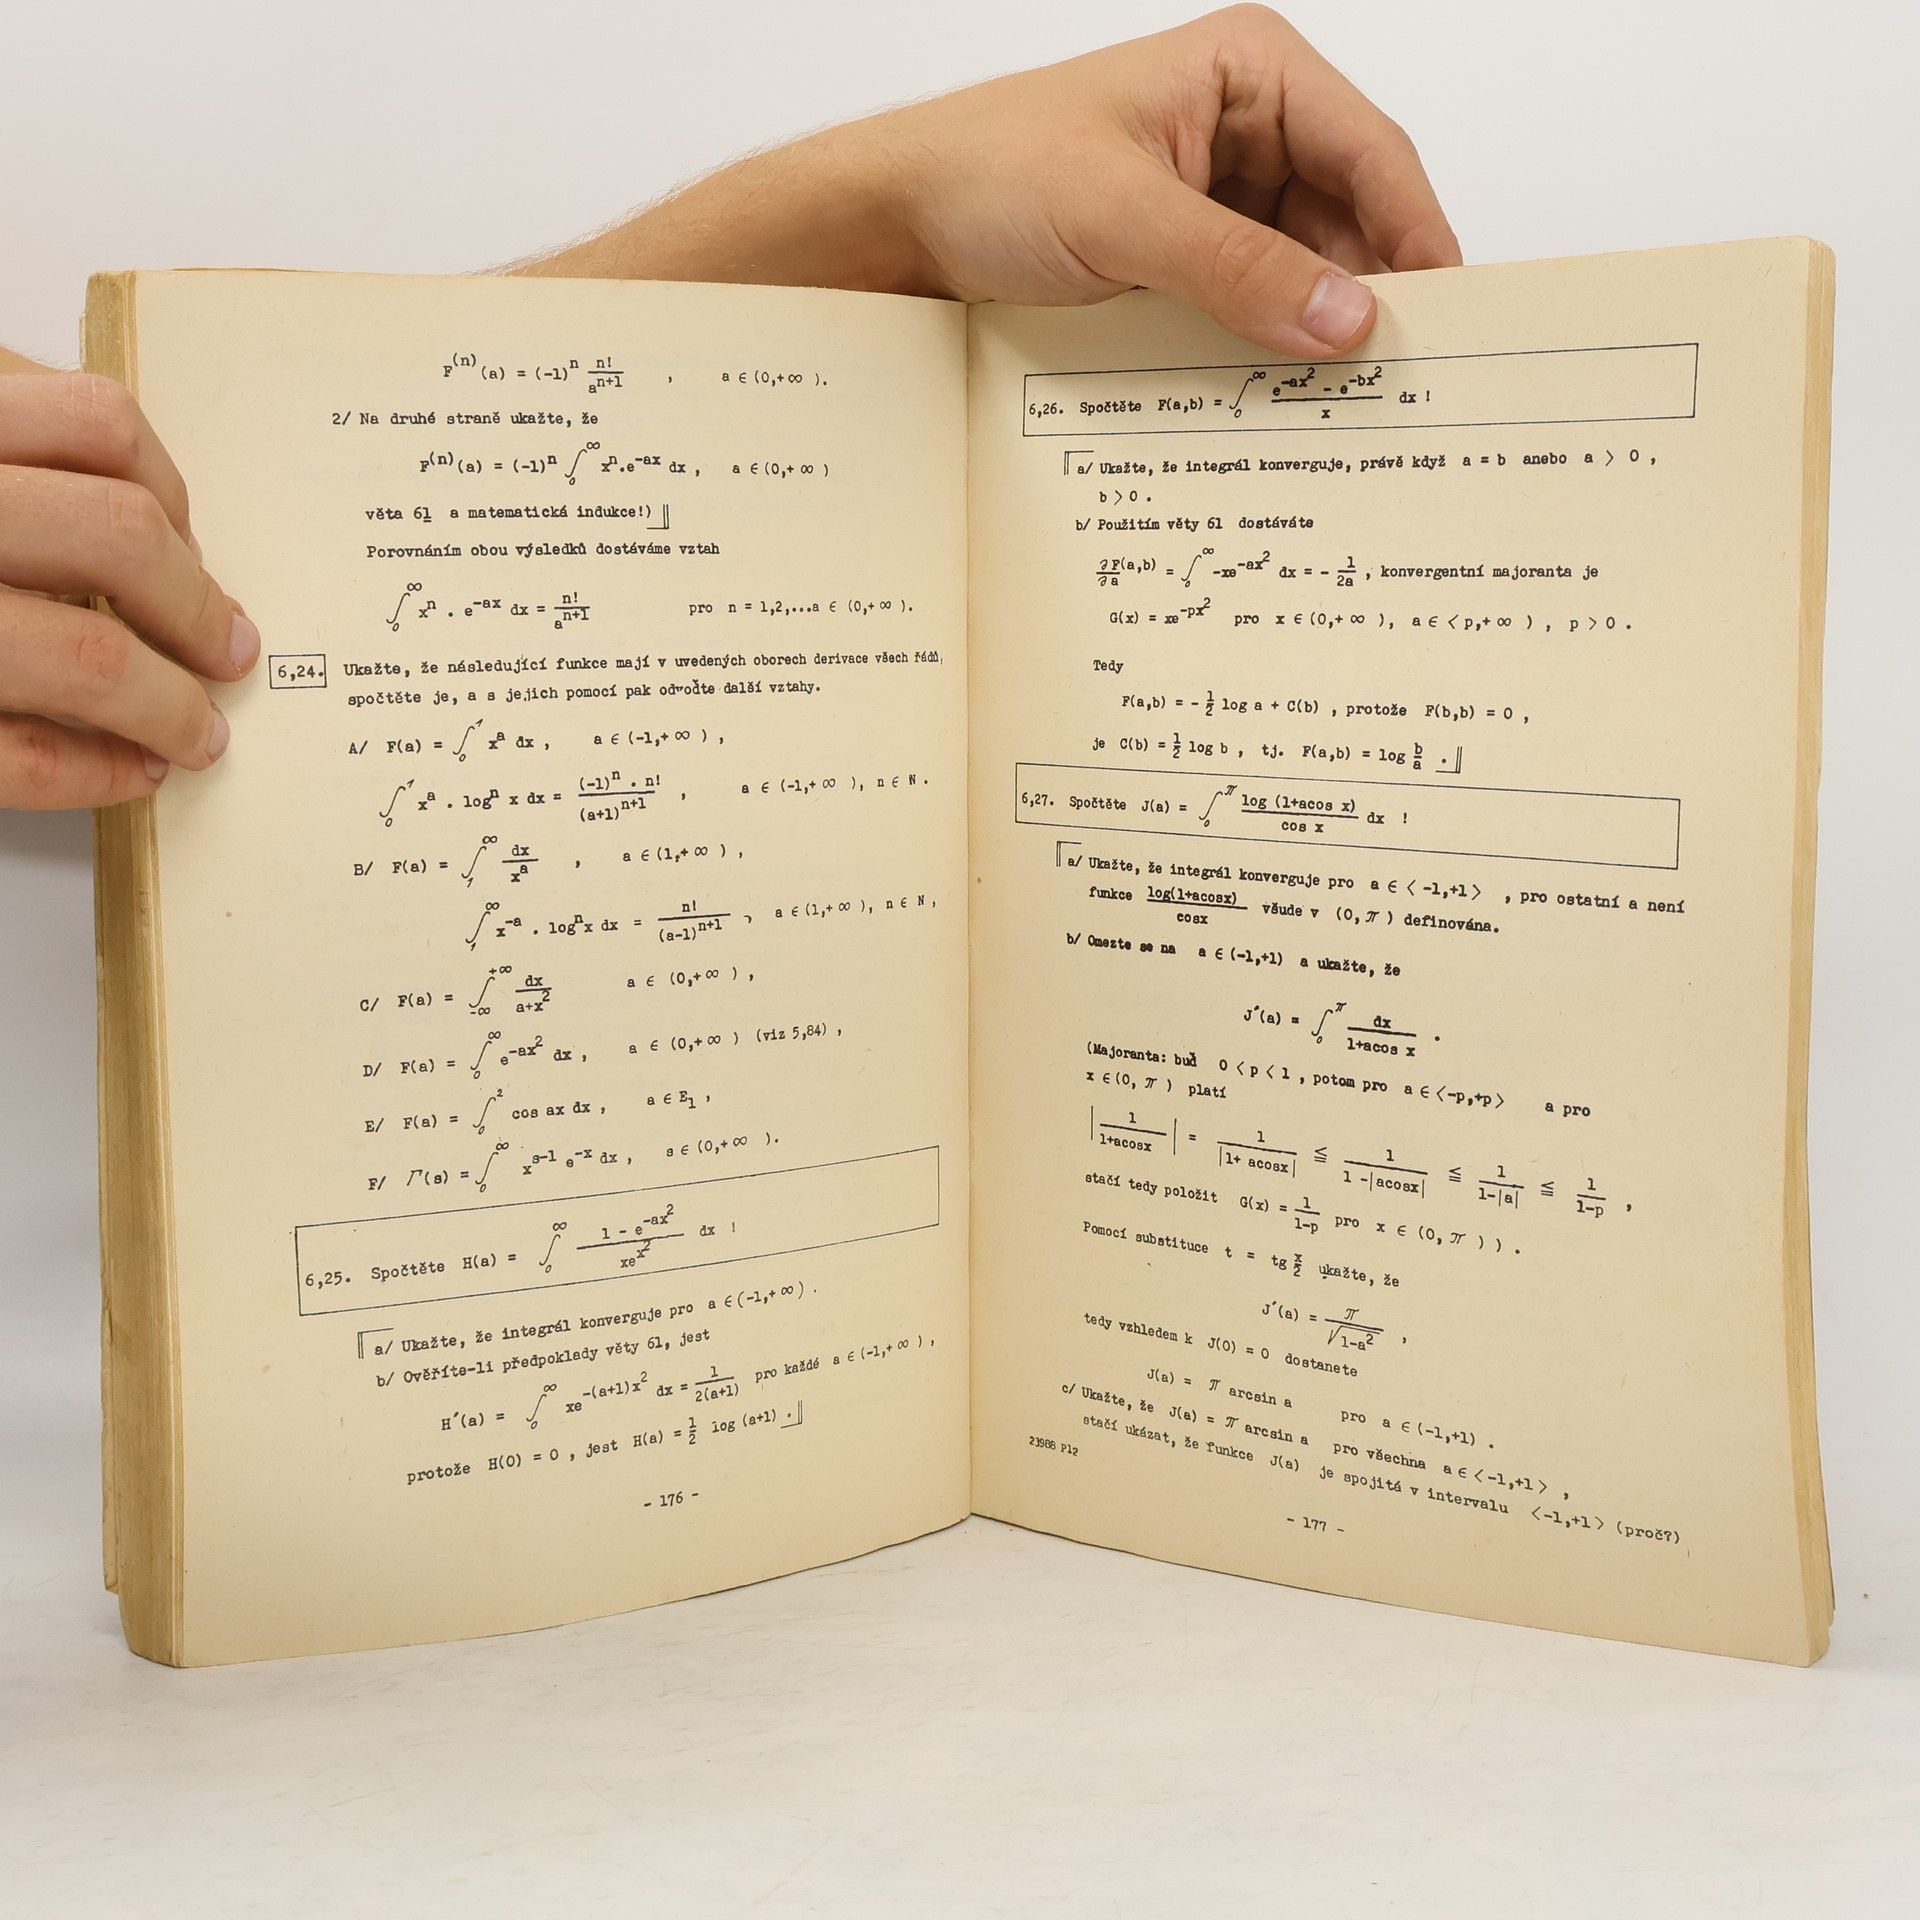 F^(n)(a) = (-1)^n n!/a^(n+1) , a ∈ (0,+∞ ).
2/ Na druhé straně ukažte, že
F^(n)(a) = (-1)^n ∫_0^∞ x^n.e^(-ax) dx , a ∈ (0,+ ∞ )
věta 61 a matematická indukce!)
Porovnáním obou výsledků dostáváme vztah
∫_0^∞ x^n . e^(-ax) dx = n!/a^(n+1) pro n = 1,2,...a ∈ (0,+∞ ).
6,24. Ukažte, že následující funkce mají v uvedených oborech derivace všech řádů,
spočtěte je, a s jejich pomocí pak odvoďte další vztahy.
A/ F(a) = ∫_0^1 x^a dx , a ∈ (-1,+ ∞ ) ,
∫_0^1 x^a . log^n x dx = (-1)^n . n!/(a+1)^(n+1) , a ∈ (-1,+ ∞ ), n ∈ N .
B/ F(a) = ∫_1^∞ dx/x^a , a ∈ (1,+ ∞ ) ,
∫_1^∞ x^(-a) . log^n x dx = n!/(a-1)^(n+1) , a ∈ (1,+ ∞ ), n ∈ N ,
C/ F(a) = ∫_(-∞)^(+∞) dx/(a+x^2) a ∈ (0,+ ∞ ) ,
D/ F(a) = ∫_0^∞ e^(-ax^2) dx , a ∈ (0,+ ∞ ) (viz 5,84) ,
E/ F(a) = ∫_0^2 cos ax dx , a ∈ E_1 ,
F/ Γ(s) = ∫_0^∞ x^(s-1) e^(-x) dx , s ∈ (0,+ ∞ ).
6,25. Spočtěte H(a) = ∫_0^∞ (1 - e^(-ax^2))/(xe^(x^2)) dx !
a/ Ukažte, že integrál konverguje pro a ∈ (-1,+ ∞) .
b/ Ověříte-li předpoklady věty 61, jest
H´(a) = ∫_0^∞ xe^(-(a+1)x^2) dx = 1/(2(a+1)) pro každé a ∈ (-1,+ ∞ ) ,
protože H(0) = 0 , jest H(a) = 1/2 log (a+1) .
- 176 -
6,26. Spočtěte F(a,b) = ∫_0^∞ (e^(-ax^2) - e^(-bx^2))/x dx !
a/ Ukažte, že integrál konverguje, právě když a = b anebo a > 0 ,
b > 0 .
b/ Použitím věty 61 dostáváte
∂F(a,b)/∂a = ∫_0^∞ -xe^(-ax^2) dx = - 1/2a , konvergentní majoranta je
G(x) = xe^(-px^2) pro x ∈ (0,+ ∞ ), a ∈ < p,+ ∞ ) , p > 0 .
Tedy
F(a,b) = - 1/2 log a + C(b) , protože F(b,b) = 0 ,
je C(b) = 1/2 log b , tj. F(a,b) = log b/a .
6,27. Spočtěte J(a) = ∫_0^π log (1+acos x)/cos x dx !
a/ Ukažte, že integrál konverguje pro a ∈ < -1,+1 > , pro ostatní a není
funkce log(1+acosx)/cosx všude v (0, π ) definována.
b/ Omezte se na a ∈ (-1,+1) a ukažte, že
J´(a) = ∫_0^π dx/(1+acos x) .
(Majoranta: buď 0 < p < 1 , potom pro a ∈ <-p,+p> a pro
x ∈ (0, π ) platí
|1/(1+acosx)| = 1/|1+ acosx| ≦ 1/(1 -|acosx|) ≦ 1/(1-|a|) ≦ 1/(1-p) ,
stačí tedy položit G(x) = 1/(1-p) pro x ∈ (0, π ) ) .
Pomocí substituce t = tg x/2 ukažte, že
J´(a) = π/√(1-a^2) ,
tedy vzhledem k J(0) = 0 dostanete
J(a) = π arcsin a pro a ∈ (-1,+1) .
c/ Ukažte, že J(a) = π arcsin a pro všechna a ∈ < -1,+1 > ,
stačí ukázat, že funkce J(a) je spojitá v intervalu < -1,+1 > (proč?)
23988 Pl2
- 177 -